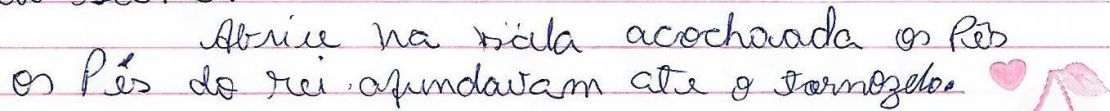 Abrice na sala acochoada os Pés
os Pés do rei afundavam ate o tornozelo.